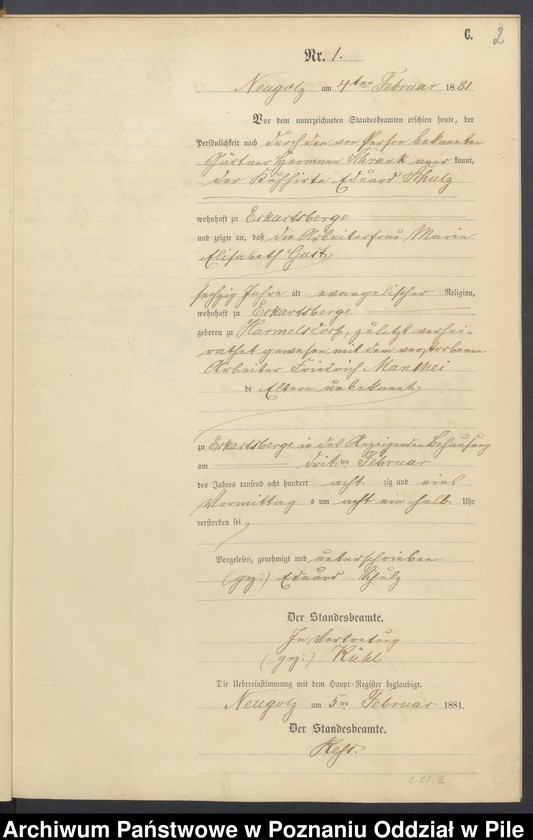 C. 2
Nr. 1.
Neugolz am 4ten Februar 1881
Vor dem unterzeichneten Standesbeamten erschien heute, der
Persönlichkeit nach durch den von Person bekannten
Gärtner Hermann Schrank aner kannt,
der Kuhhirte Eduard Schulz
wohnhaft zu Eckartsberge
und zeigte an, daß die Arbeiterfrau Marie
Elisabeth Gust,
sechzig Jahre alt evangelischer Religion,
wohnhaft zu Eckartsberge
geboren zu Harmelsdorf, zuletzt verhei-
rathet gewesen mit dem verstorbenen
Arbeiter Friedrich Manthei
de Eltern unbekannt,
zu Eckartsberge in des Anzeigenden Behausung
am dritten Februar
des Jahres tausend acht hundert acht zig und eins
Vormittag s um acht ein halb Uhr
verstorben sei,
Vorgelesen, genehmigt und unterschrieben
(gez:) Eduard Schulz
Der Standesbeamte.
In Vertretung
(gez:) Kühl
Die Uebereinstimmung mit dem Haupt-Register beglaubigt.
Neugolz am 5ten Februar 1881.
Der Standesbeamte.
Archiwum Państwowe w Poznaniu Oddział w Pile